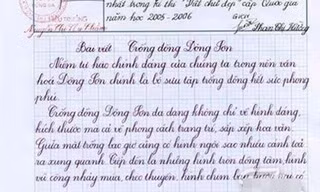 nhất trong kì thi "Viết chữ đẹp" cấp Quốc gia
năm học 2005 - 2006
Phan Thị Hồng
Bài viết Trống đồng Đông Sơn
Niềm tự hào chính đáng của chúng ta trong nền văn
hoá Đông Sơn chính là bộ sưu tập trống đồng hết sức phong
phú.
Trống đồng Đông Sơn đa dạng không chỉ về hình dáng,
kích thước mà cả về phong cách trang trí, sắp xếp hoa văn.
Giữa mặt trống bao giờ cũng có hình ngôi sao nhiều cánh toả
ra xung quanh. Tiếp đến là những hình tròn đồng tâm, hình
vũ công nhảy múa, chèo thuyền, hình chim